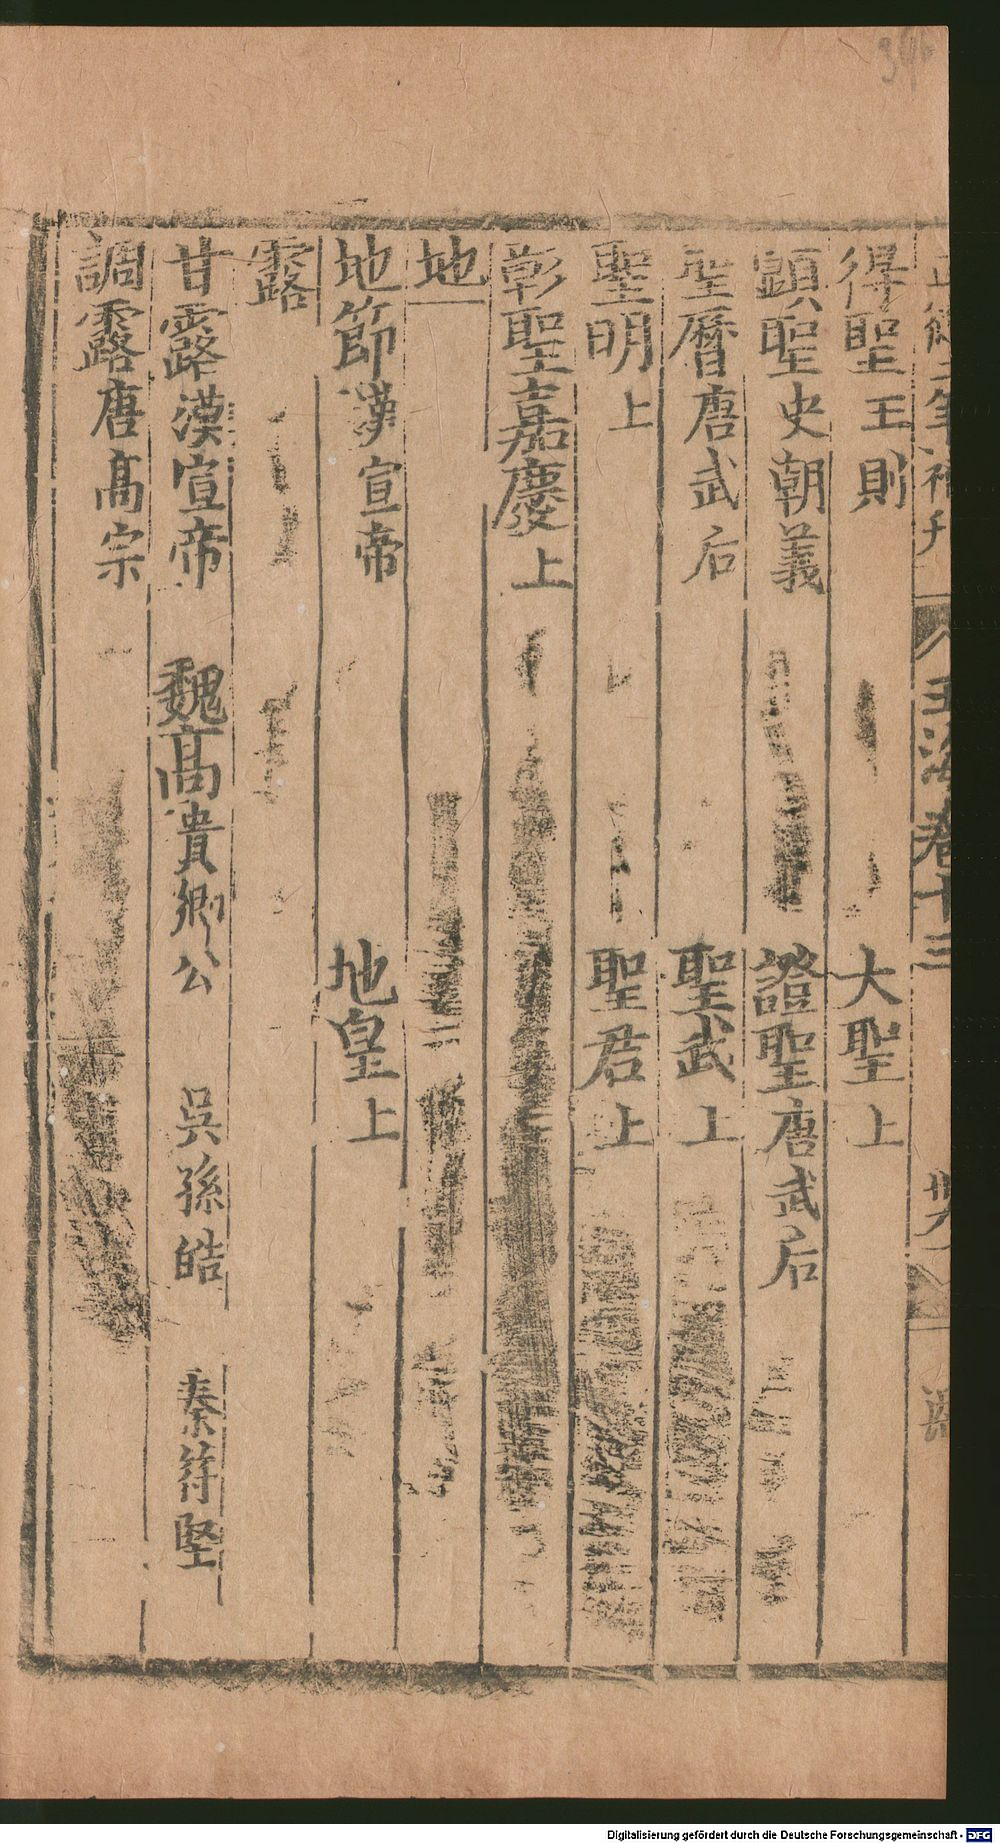 得聖王則　大聖上
顕聖史朝義　證聖唐武后
聖曆唐武后　聖武上
聖明上　聖君上
彰聖嘉慶上
地
地節漢宣帝　地皇上
露
甘露漢宣帝　魏高貴卿公　吳孫皓　秦符堅
調露唐高宗
玉海卷十三
Digitalisierung gefördert durch die Deutsche Forschungsgemeinschaft - DFG